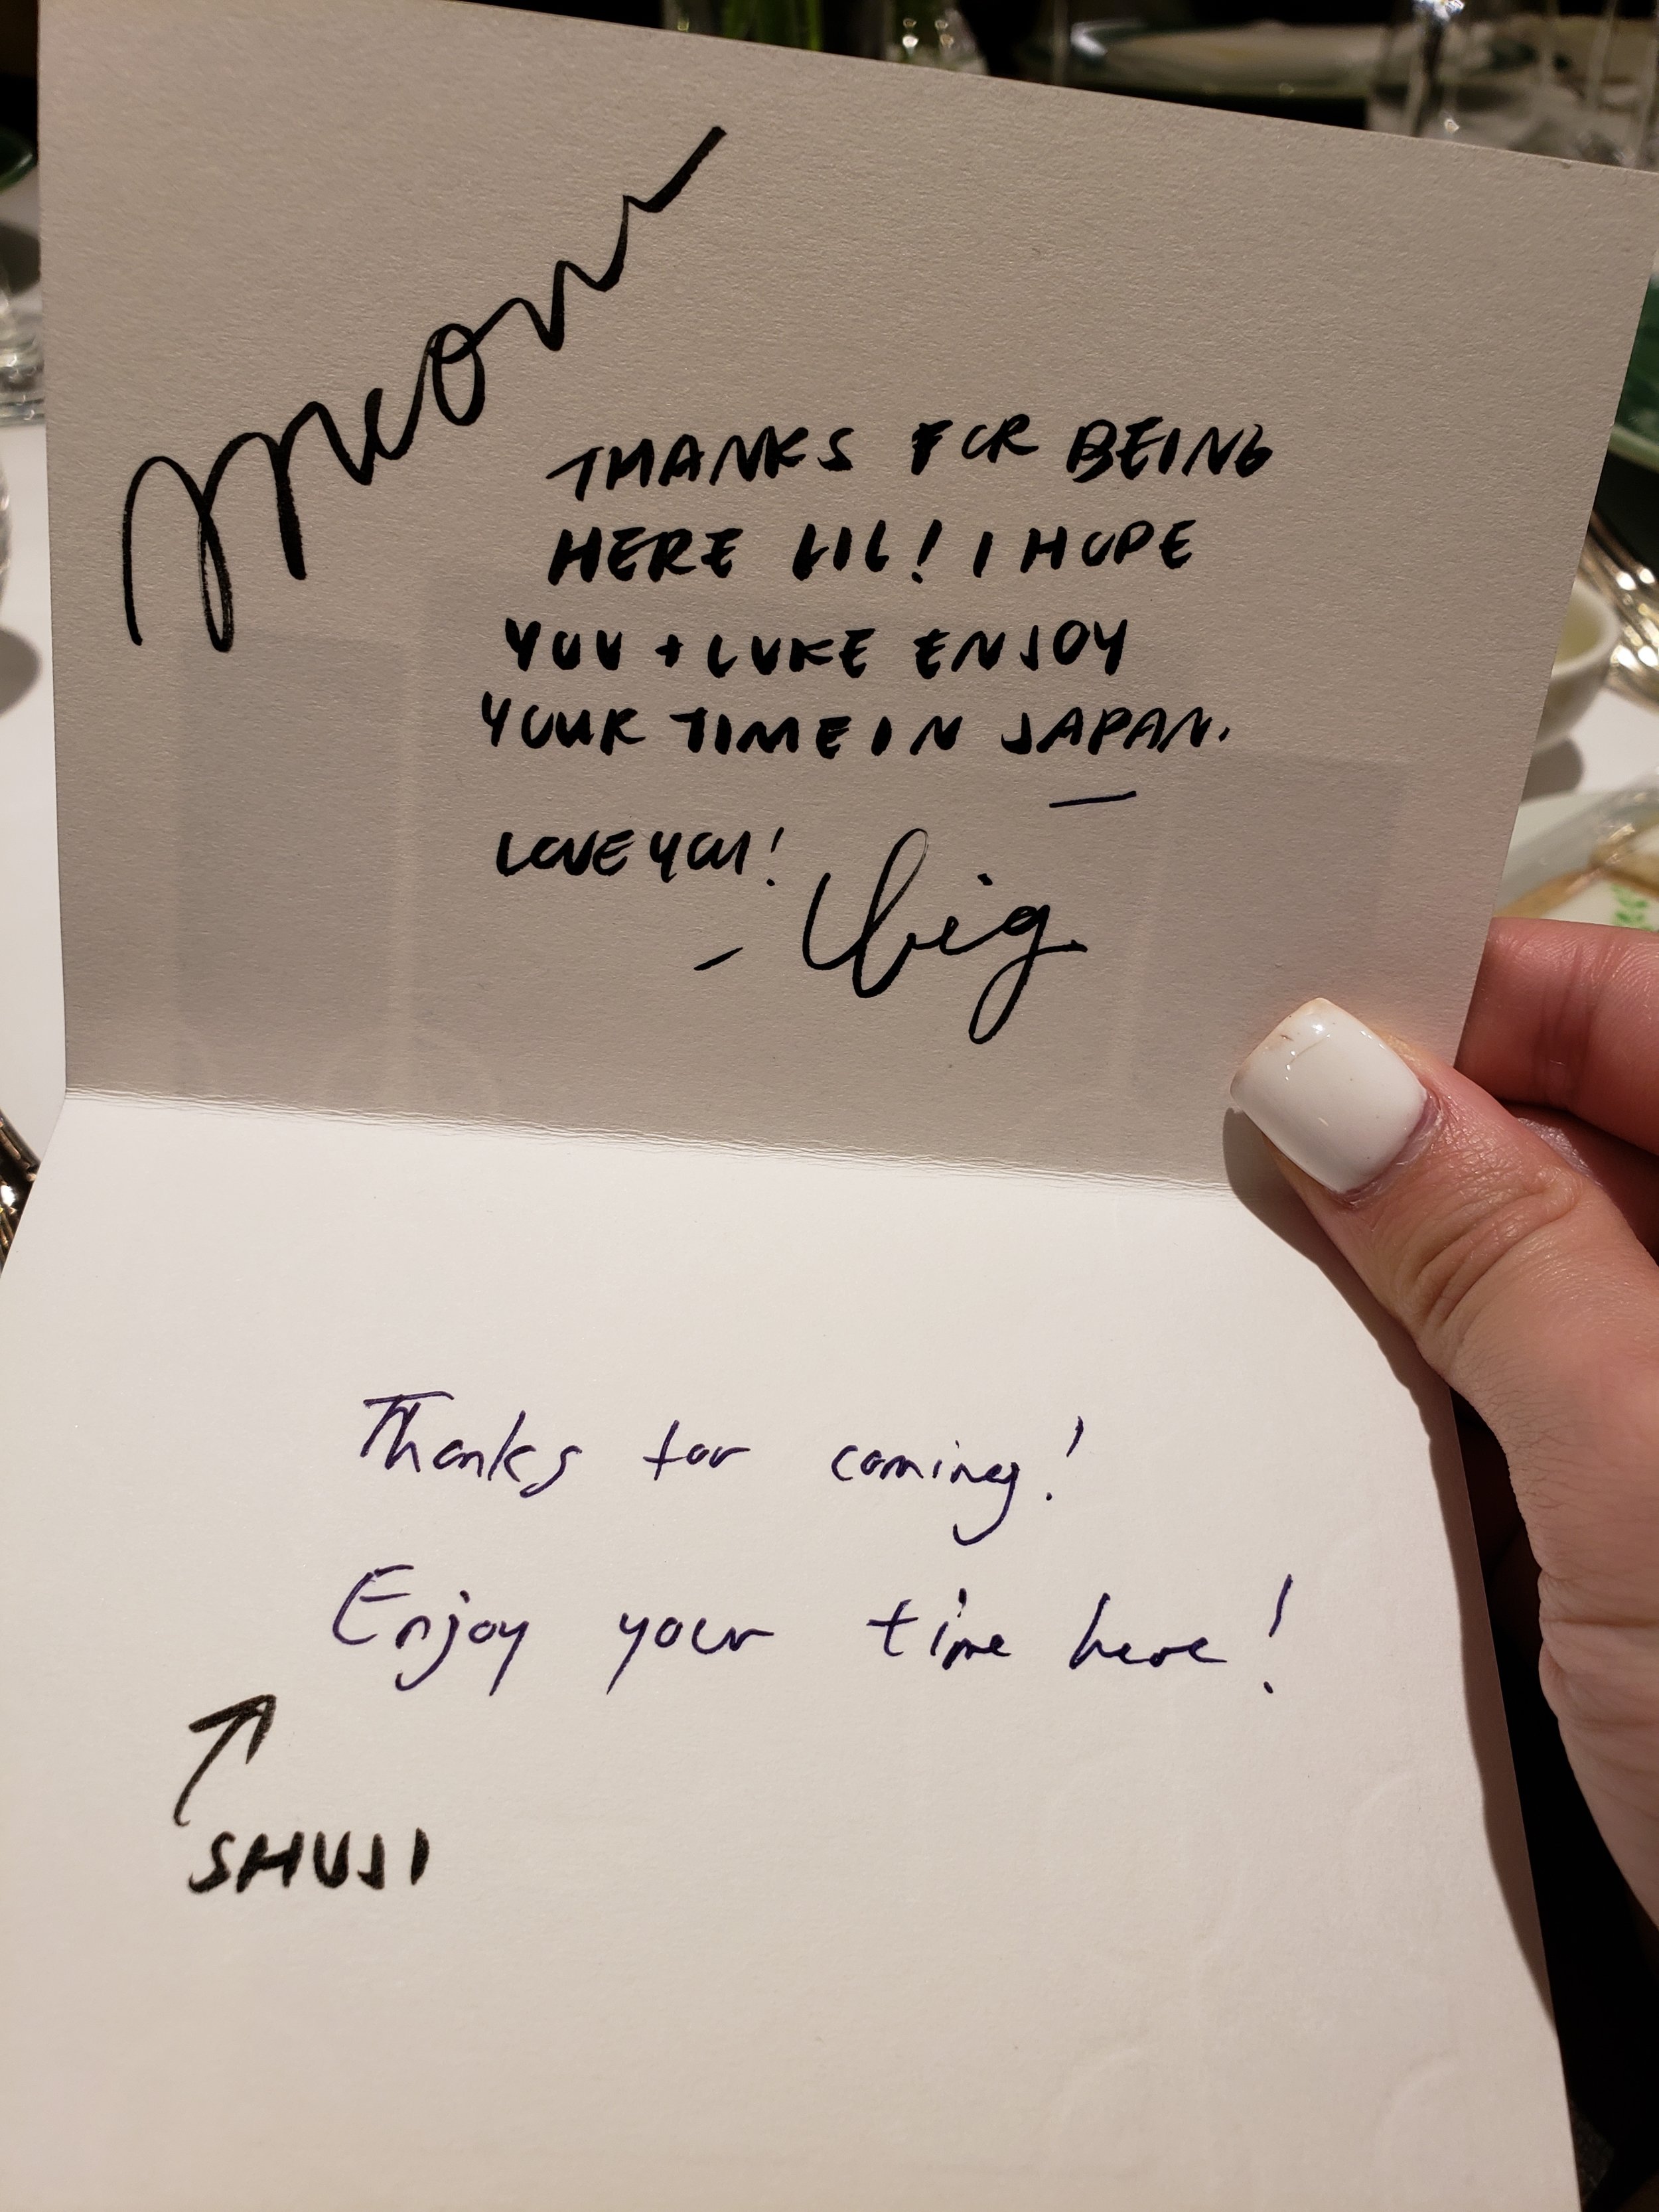 meow
THANKS FOR BEING
HERE LIL! I HOPE
YOU + LUKE ENJOY
YOUR TIME IN JAPAN.
LOVE YOU!
- big
Thanks for coming!
Enjoy your time here!
SHUJI